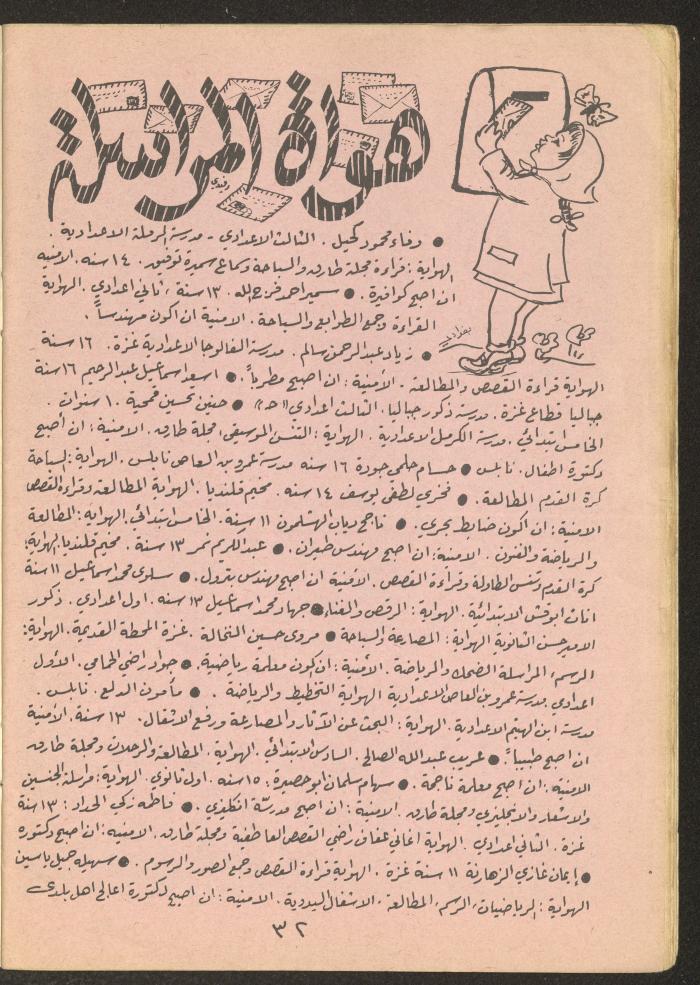 هواة المراسلة
● وفاء محمود كحيل . الثالث الاعدادي - مدرسة الرملة الاعدادية .
الهواية : قراءة مجلة طارق والسباحة وسماع سميرة توفيق . ١٤ سنه . الامنيه
ان اصبح كوافيرة . ● سمير احمد فرج الله . ١٣ سنة ، ثاني اعدادي . الهواية
القراءة وجمع الطوابع والسباحة . الامنية ان اكون مهندساً .
● زياد عبدالرحمن سالم . مدرسة الفالوجا الاعدادية غزة . ١٦ سنة
الهواية قراءة القصص والمطالعة . الأمنية : ان اصبح مطرباً . ● اسعد اسماعيل عبدالرحيم ١٦ سنة
جباليا قطاع غزة . مدرسة ذكور جباليا . الثالث اعدادي « ح » ● حنين تحسين قمحية ١٠ سنوات .
الخامس ابتدائي . مدرسة الكرمل الاعدادية . الهواية : التنس الموسيقى مجلة طارق . الامنية : ان أصبح
دكتورة اطفال . نابلس ● حسام حلمي جودة ١٦ سنه مدرسة عمرو بن العاص نابلس . الهواية : السباحة
كرة القدم المطالعة . ● فخري لطفي يوسف ١٤ سنه . مخيم قلنديا . الهواية المطالعة وقراءة القصص
الامنية : ان اكون ضابط بحري . ● ناجح دياب الهشلمون ١١ سنة . الخامس ابتدائي . الهواية : المطالعة
والرياضة والفنون . الامنية : ان اصبح مهندس طيران . ● عبدالكريم نمر ١٣ سنة . مخيم قلنديا . الهواية :
كرة القدم وتنس الطاولة وقراءة القصص . الأمنية ان اصبح مهندس بترول . ● سلوى محمد اسماعيل ١١ سنة
اناث ابوقش الابتدائية . الهواية : الرقص والغناء ● جهاد محمد اسماعيل ١٣ سنه . اول اعدادي . ذكور
الامير حسن الثانوية الهواية : المصارعة والسباحة ● مروى حسين النخالة . غزة المحطة القديمة . الهواية :
الرسم ، المراسلة الضحك والرياضة . الأمنية : ان كون معلمة رياضية . ● جواد راضي المحامي . الأول
اعدادي . مدرسة عمرو بن العاص الاعدادية الهواية التخطيط والرياضة . ● مأمون الدلع . نابلس .
مدرسة ابن الهيثم الاعدادية . الهواية : البحث عن الآثار والمصارعة ورفع الاثقال . ١٣ سنة . الأمنية
ان اصبح طبيباً . ● عريب عبدالله الصالحي . السادس الابتدائي . الهواية . المطالعة والرحلات ومجلة طارق
الامنية : ان اصبح معلمة ناجحة . ● سهام سلمان ابوحصيرة : ١٥ سنه . اول ثانوي . الهواية : مراسلة الجنسين
والاشعار والانجليزي ومجلة طارق . الامنية : ان اصبح مدرسة انكليزي . ● فاطمه زكي الحداد : ١٣ سنة
غزة . الثاني اعدادي . الهواية اغاني عفاف راضي القصص العاطفية ومجلة طارق . الامنيه : ان اصبح دكتوره
● إيمان غازي الزهارنة ١١ سنة غزة . الهواية قراءة القصص وجمع الصور والرسوم . ● سهيله جميل ياسين
الهواية : الرياضيات ، الرسم ، المطالعة ، الاشغال اليدوية . الامنية : ان اصبح دكتورة اعالج اهل بلدي
٣٢